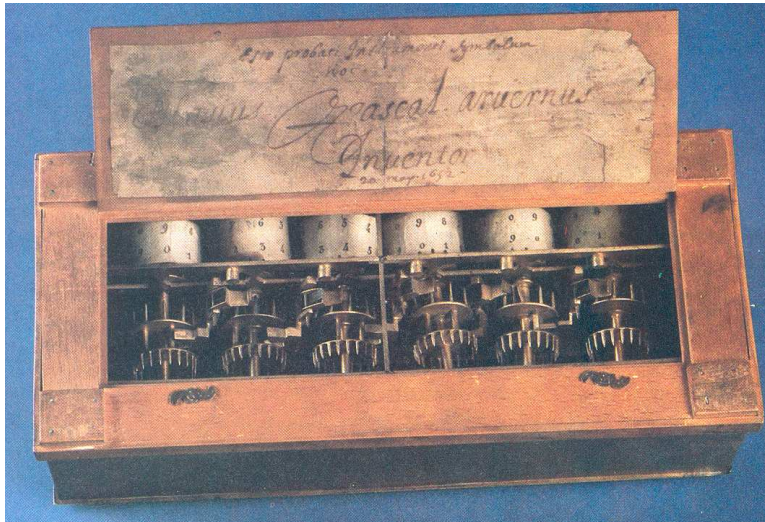 Esto probati instrumenti symbolum
hoc
Blasius Pascal arvernus
Inventor
20 may 1652